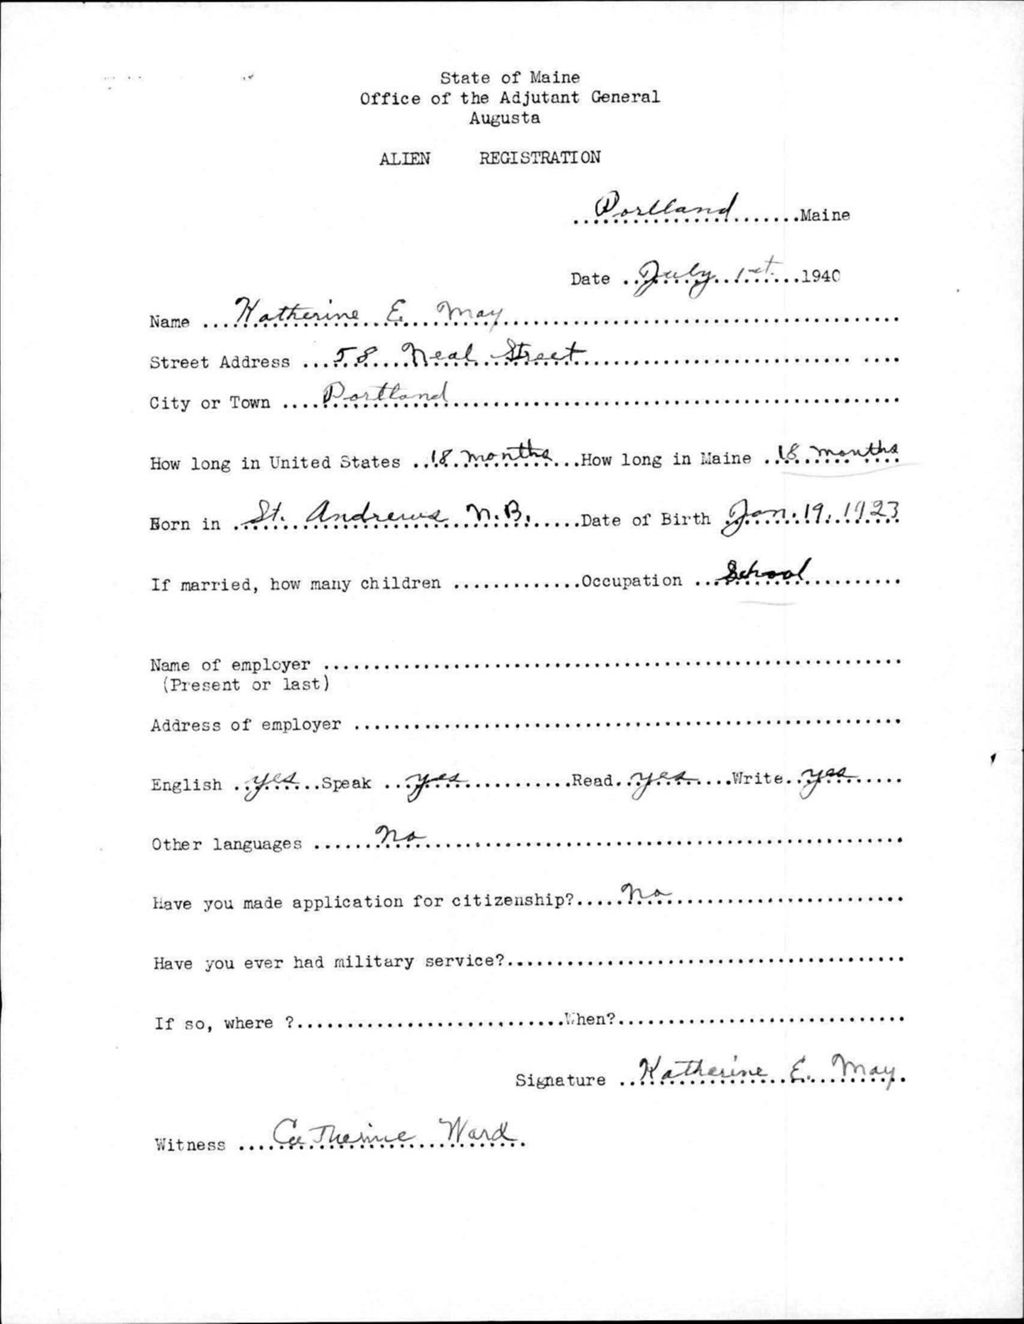 State of Maine
Office of the Adjutant General
Augusta
ALIEN REGISTRATION
Portland Maine
Date July 1st 1940
Name Katherine E. May
Street Address 58 Neal Street
City or Town Portland
How long in United States 18 months How long in Maine 18 months
Born in St. Andrews N.B. Date of Birth Jan. 19, 1923
If married, how many children Occupation School
Name of employer
(Present or last)
Address of employer
English yes Speak yes Read yes Write yes
Other languages No
Have you made application for citizenship? No
Have you ever had military service?
If so, where ? When?
Signature Katherine E. May
Witness Catherine Ward